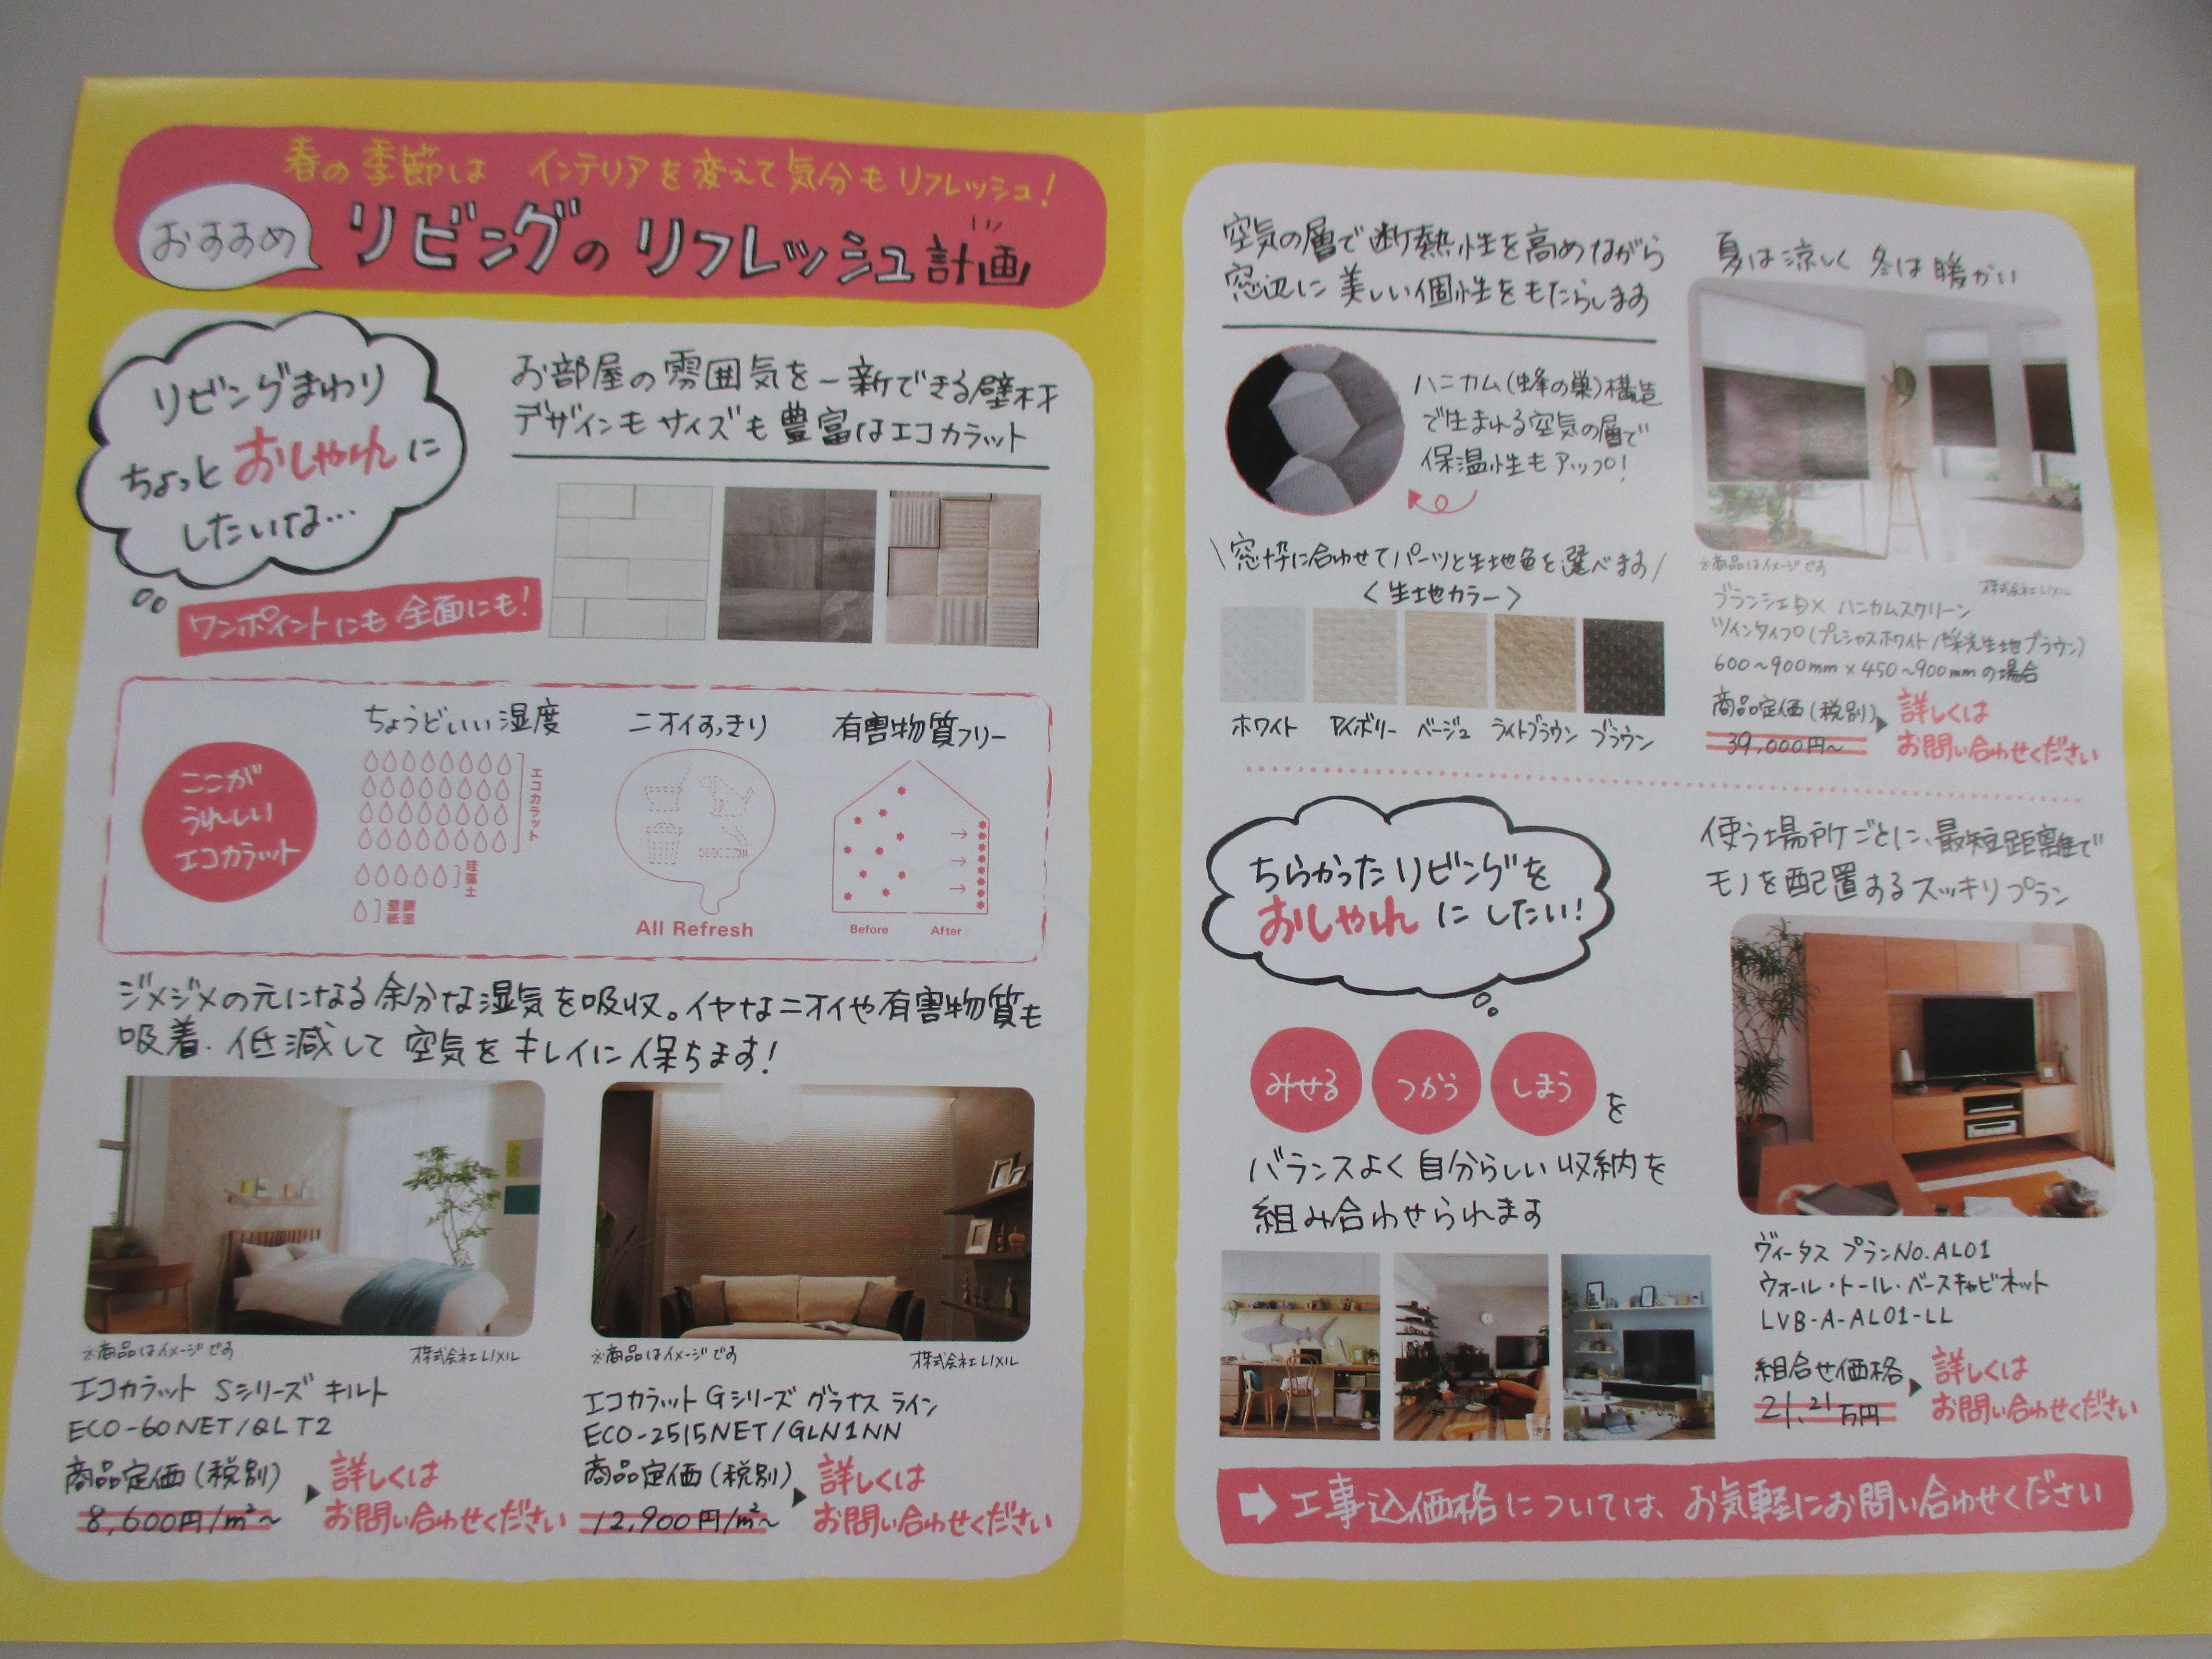 春の季節は インテリアを変えて気分もリフレッシュ!
おすすめ
リビングのリフレッシュ計画
リビングまわり
ちょっとおしゃれに
したいな…
お部屋の雰囲気を一新できる壁材
デザインもサイズも豊富はエコカラット
ワンポイントにも全面にも!
ここが
うれしい
エコカラット
ちょうどいい湿度
エコカラット
珪藻土
調湿
壁紙
ニオイすっきり
All Refresh
有害物質フリー
Before
After
ジメジメの元になる余分な湿気を吸収。イヤなニオイや有害物質も
吸着・低減して空気をキレイに保ちます!
※商品はイメージです
株式会社LIXIL
エコカラット Sシリーズ キルト
ECO-60NET/QLT2
商品定価(税別)
8,600円/m²~
詳しくは
お問い合わせください
※商品はイメージです
株式会社LIXIL
エコカラット Gシリーズ グラナス ライン
ECO-2515NET/GLN1NN
商品定価(税別)
12,900円/m²~
詳しくは
お問い合わせください
空気の層で断熱性を高めながら
窓辺に美しい個性をもたらします
ハニカム(蜂の巣)構造
で生まれる空気の層で
保温性もアップ!
窓枠に合わせてパーツと生地色を選べます
<生地カラー>
ホワイト
アイボリー
ベージュ
ライトブラウン
ブラウン
夏は涼しく 冬は暖かい
※商品はイメージです
株式会社LIXIL
ブランシェ DX ハニカムスクリーン
ツインタイプ(プレシャスホワイト/採光生地ブラウン)
600~900mm×450~900mmの場合
商品定価(税別)
39,000円~
詳しくは
お問い合わせください
ちらかったリビングを
おしゃれにしたい!
みせる
つかう
しまう
を
バランスよく自分らしい収納を
組み合わせられます
使う場所ごとに、最短距離で
モノを配置するスッキリプラン
ヴィータス プランNo.AL01
ウォール・トール・ベースキャビネット
LVB-A-AL01-LL
組合せ価格
21.21万円
詳しくは
お問い合わせください
工事込価格については、お気軽にお問い合わせください